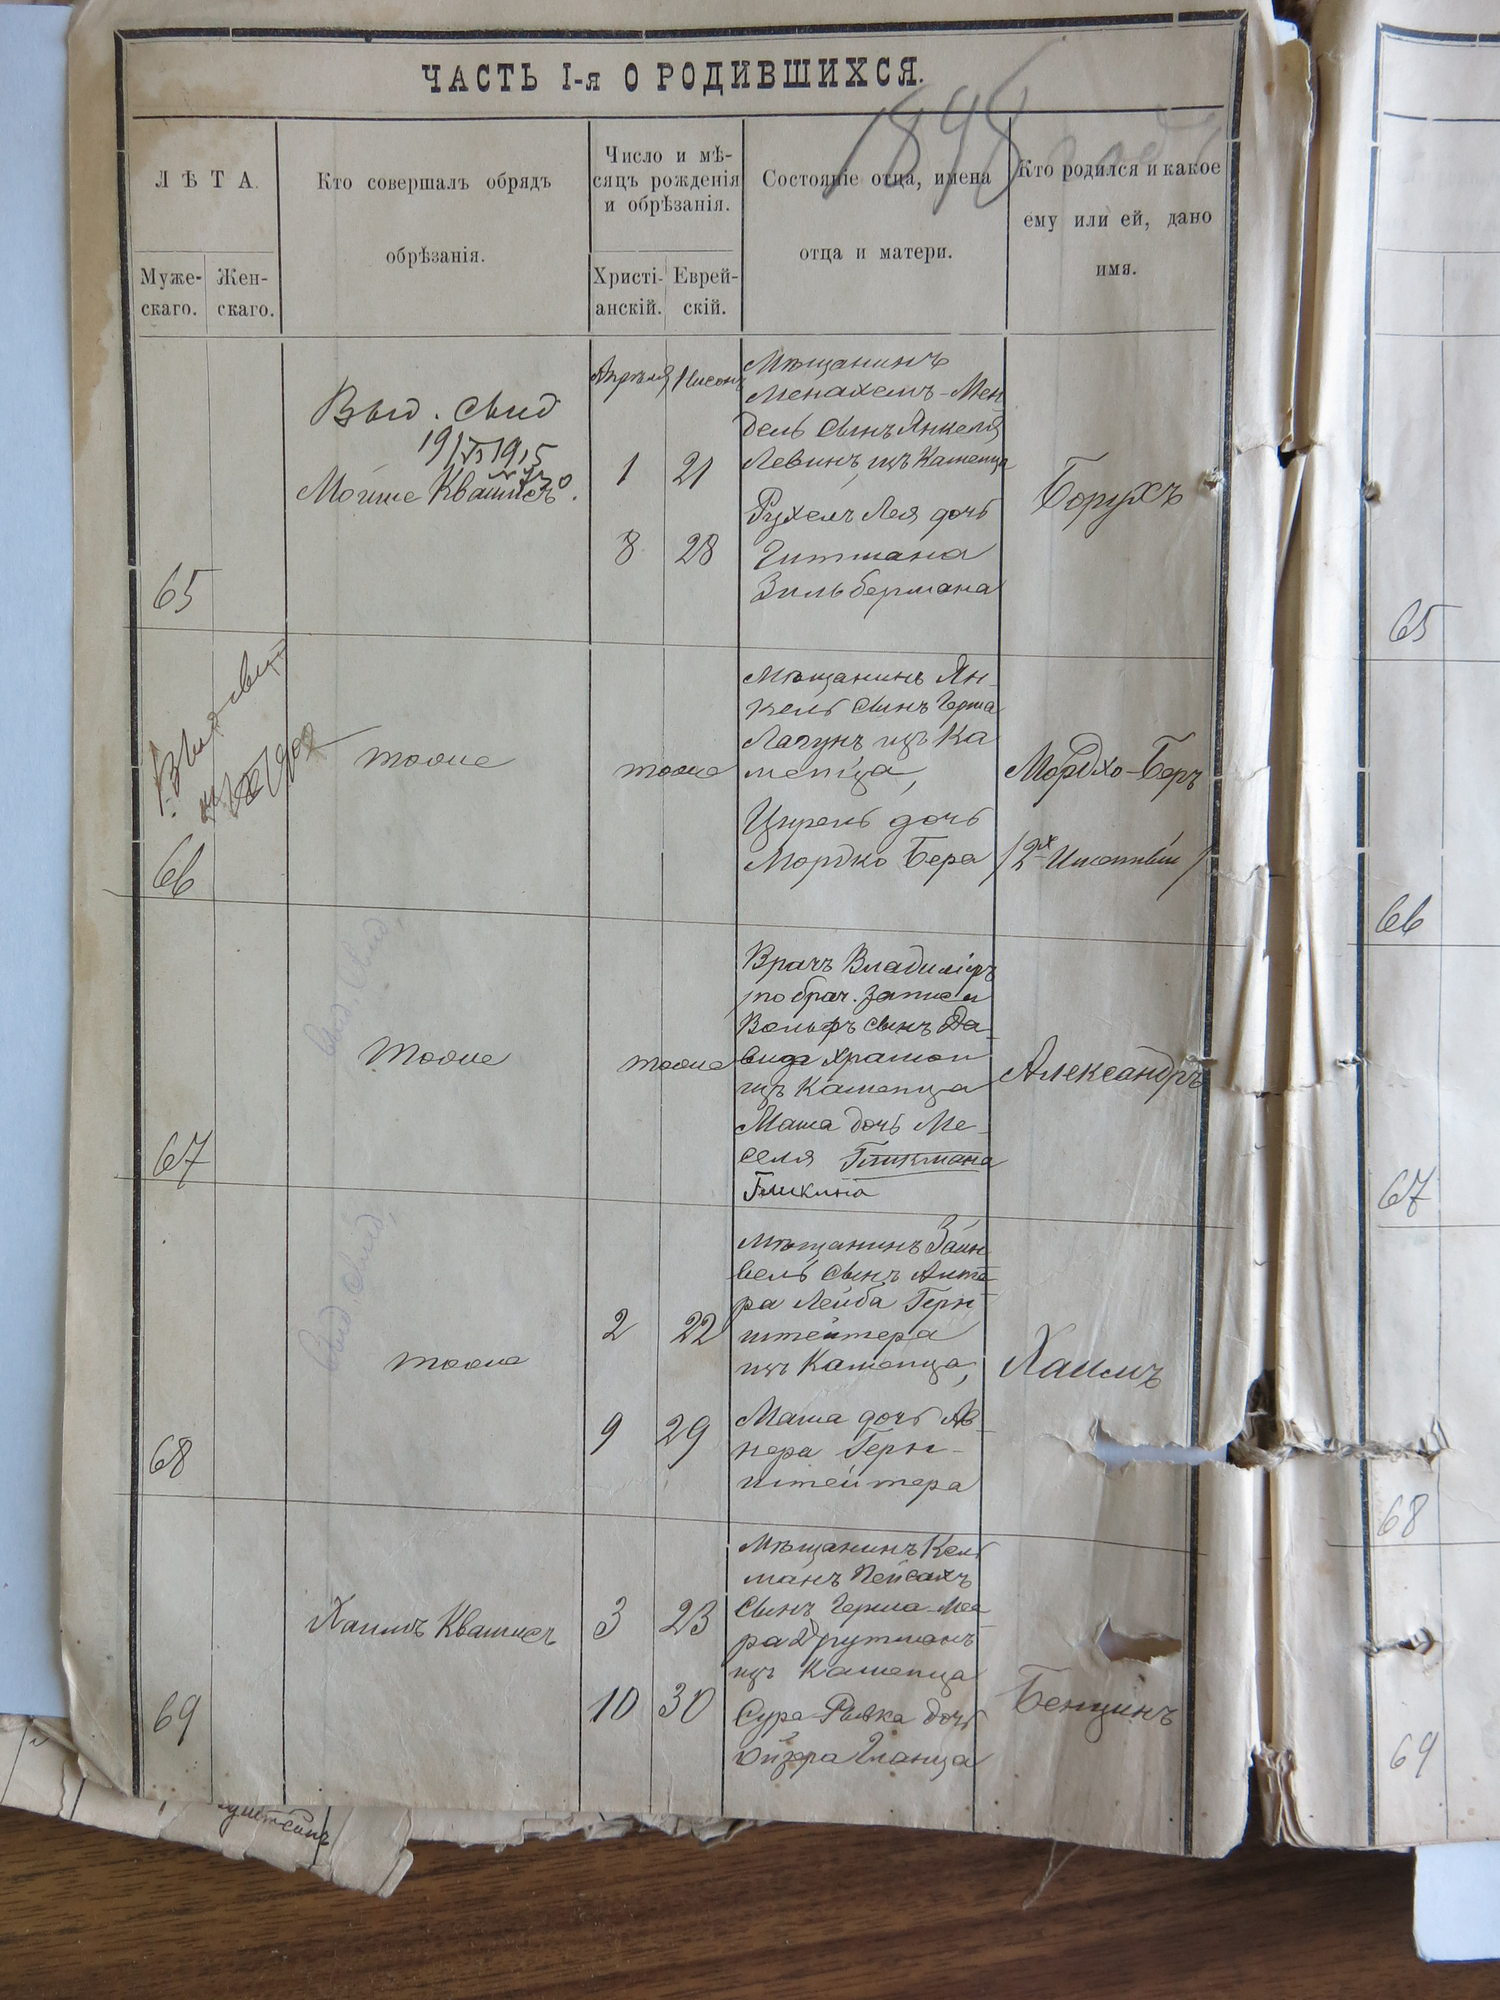 ЧАСТЬ I-я О РОДИВШИХСЯ.
1898 года
ЛѢТА.
Муже-
скаго.
Жен-
скаго.
Кто совершалъ обрядъ
обрѣзанія.
Число и мѣ-
сяцъ рожденія
и обрѣзанія.
Христі-
анскій.
Еврей-
скій.
Состояніе отца, имена
отца и матери.
Кто родился и какое
ему или ей, дано
имя.
65
Выд. свид
Мойше Квашнсъ.
Апрѣля Нисонъ
1 21
8 28
Мѣщанинъ
Менахемъ-Мен
дель сынъ Янкеля
Левинъ, изъ Каменца
Рухель Лея дочь
Гитмана
Зильбермана
Борухъ
66
тоже
тоже
Мѣщанинъ Ян-
кель сынъ Герша
Лагунъ изъ Ка
менца,
Цирель дочь
Мордко Бера
Мордхо-Беръ
67
тоже
тоже
Врачъ Владиміръ
по брач. записи
Вольфъ сынъ Да-
вида Храмой
изъ Каменца
Маша дочь Ме-
селя Гликмана
Гликина
Александръ
68
тоже
2 22
9 29
Мѣщанинъ Зайн
вель сынъ Анте-
ра Лейба Герн
штейтера
изъ Каменца,
Маша дочь Ав-
нера Герн-
штейтера
Хаимъ
69
Хаимъ Квашнсъ
3 23
10 30
Мѣщанинъ Кель
манъ Пейсахъ
сынъ Герша-Мее
ра Грутманъ
изъ Каменца
Сура-Ривка дочь
Ойзера Гланца
Бенцинъ
65
66
67
68
69